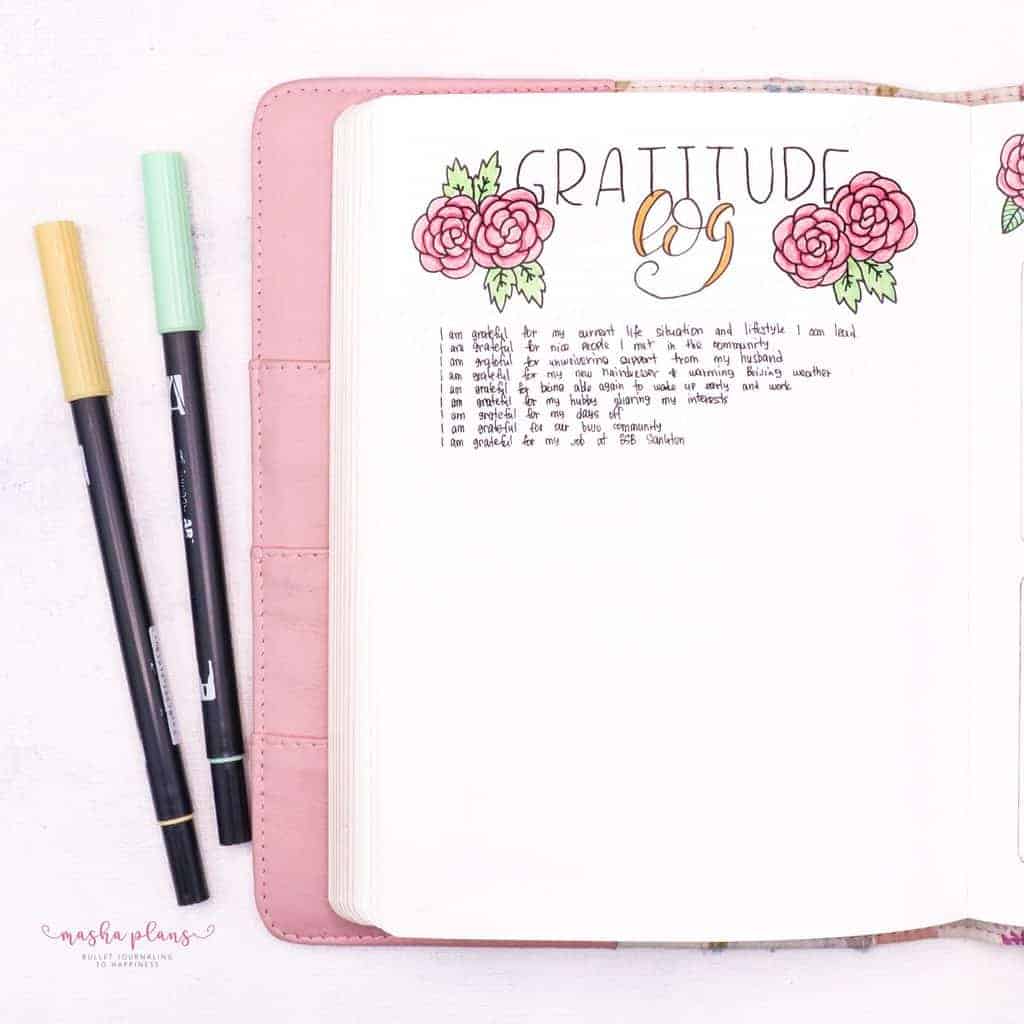 GRATITUDE
log
I am grateful for my current life situation and lifestyle I am lead
I am grateful for nice people I met in the community
I am grateful for unwavering support from my husband
I am grateful for my new hairdresser & warming Beijing weather
I am grateful for being able again to wake up early and work
I am grateful for my hubby sharing my interests
I am grateful for my days off
I am grateful for our bujo community
I am grateful for my job at BSB Sanlitun
masha plans
BULLET JOURNALING
TO HAPPINESS